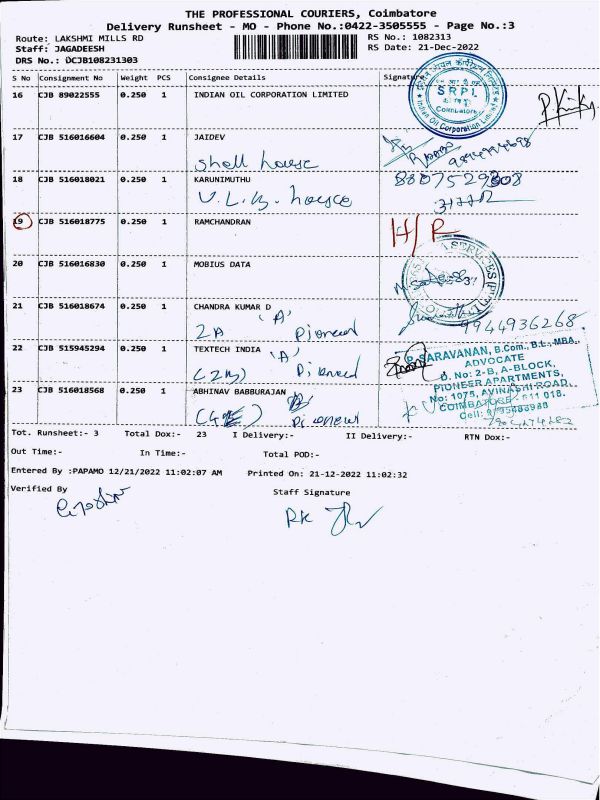 THE PROFESSIONAL COURIERS, Coimbatore
Delivery Runsheet - MO - Phone No.:0422-3505555 - Page No.:3
Route: LAKSHMI MILLS RD
RS No.: 1082313
Staff: JAGADEESH
RS Date: 21-Dec-2022
DRS No.: DCJB108231303
S No Consignment No Weight PCS Consignee Details Signature
16 CJB 89022555 0.250 1 INDIAN OIL CORPORATION LIMITED
SRPL
Coimbatore
Indian Oil Corporation Limited
17 CJB 516016604 0.250 1 JAIDEV
Shell house
18 CJB 516018021 0.250 1 KARUNIMUTHU
8807529308
V.L.B. house
19 CJB 516018775 0.250 1 RAMCHANDRAN
H/R
20 CJB 516016830 0.250 1 MOBIUS DATA
21 CJB 516018674 0.250 1 CHANDRA KUMAR D
'A'
2A Pioneer
9944936268
22 CJB 515945294 0.250 1 TEXTECH INDIA 'A'
(2B) Pioneer
23 CJB 516018568 0.250 1 ABHINAV BABBURAJAN
Pioneer
P. SARAVANAN, B.Com., B.L., MBA.,
ADVOCATE
D. No: 2-B, A-BLOCK,
PIONEER APARTMENTS,
No: 1075, AVINASHI ROAD,
COIMBATORE - 611 018.
Tot. Runsheet:- 3 Total Dox:- 23 I Delivery:- II Delivery:- RTN Dox:-
Out Time:- In Time:- Total POD:-
Entered By :PAPAMO 12/21/2022 11:02:07 AM Printed On: 21-12-2022 11:02:32
Verified By
Staff Signature
RK